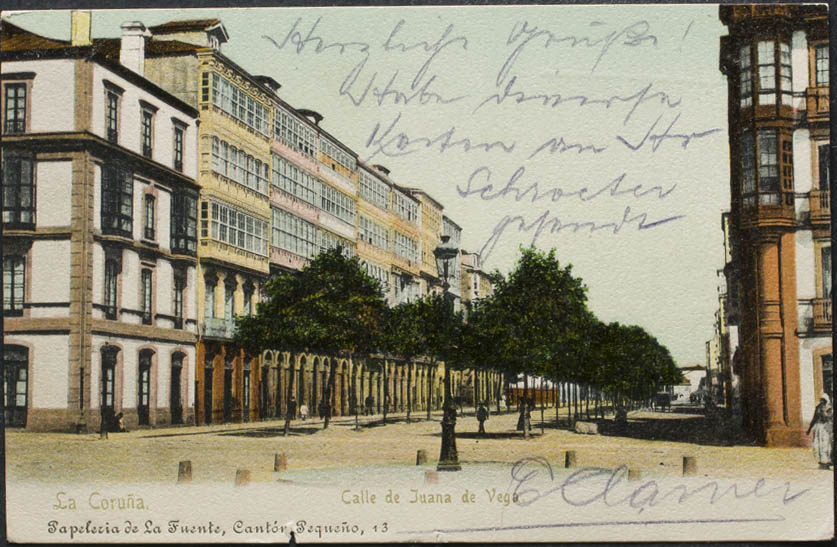 Herzliche Grüße!
Habe diverse
Karten an Hr
Schroeter
gesandt
La Coruña.
Calle de Juana de Vega
Papelería de La Fuente, Cantón Pequeño, 13